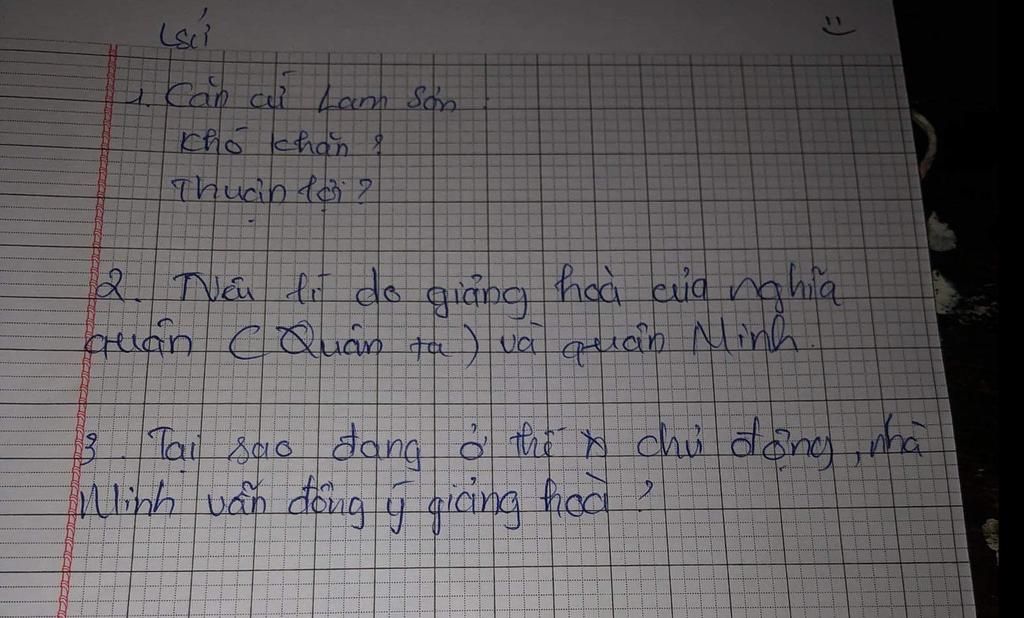 Lsử
1. Căn cứ Lam Sơn.
Khó khăn?
Thuận lợi?
2. Nêu lí do giảng hoà của nghĩa
quân (Quân ta) và quân Minh.
3. Tại sao đang ở thế chủ động, nhà
Minh vẫn đồng ý giảng hoà?